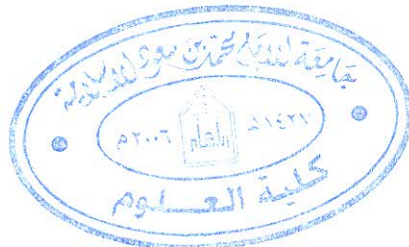 جامعة الإمام محمد بن سعود الإسلامية
١٤٢٧هـ
٢٠٠٦م
كلية العلوم